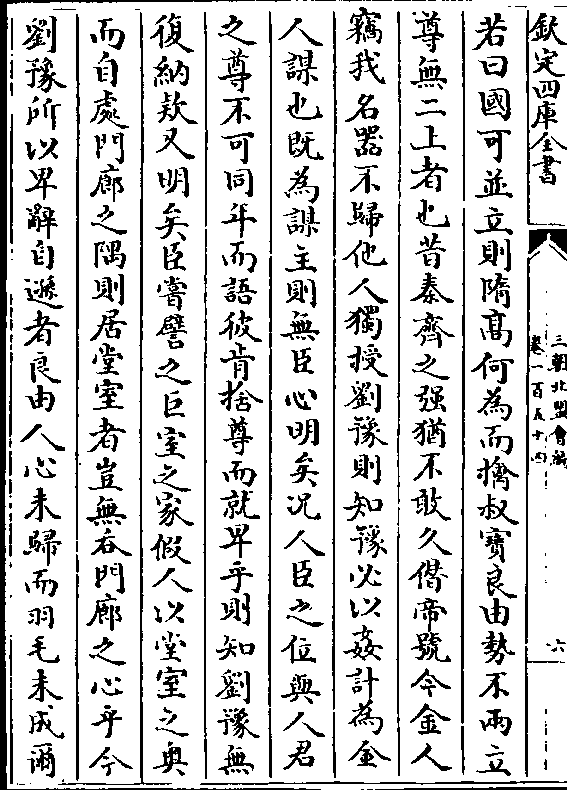 欽定四庫全書
三朝北盟會編
卷一百五十四
六
若曰國可並立則隋髙何為而擒叔寳良由勢不兩立
尊無二上者也昔秦齊之强猶不敢久僭帝號今金人
竊我名器不歸他人獨授劉豫則知豫必以姦計為金
人謀也既為謀主則無臣心明矣况人臣之位與人君
之尊不可同年而語彼肯捨尊而就卑乎則知劉豫無
復納欵又明矣臣嘗譬之巨室之家假人以堂室之奥
而自處門廊之隅則居堂室者豈無吞門廊之心乎今
劉豫所以卑辭自遜者良由人心未歸而羽毛未成爾